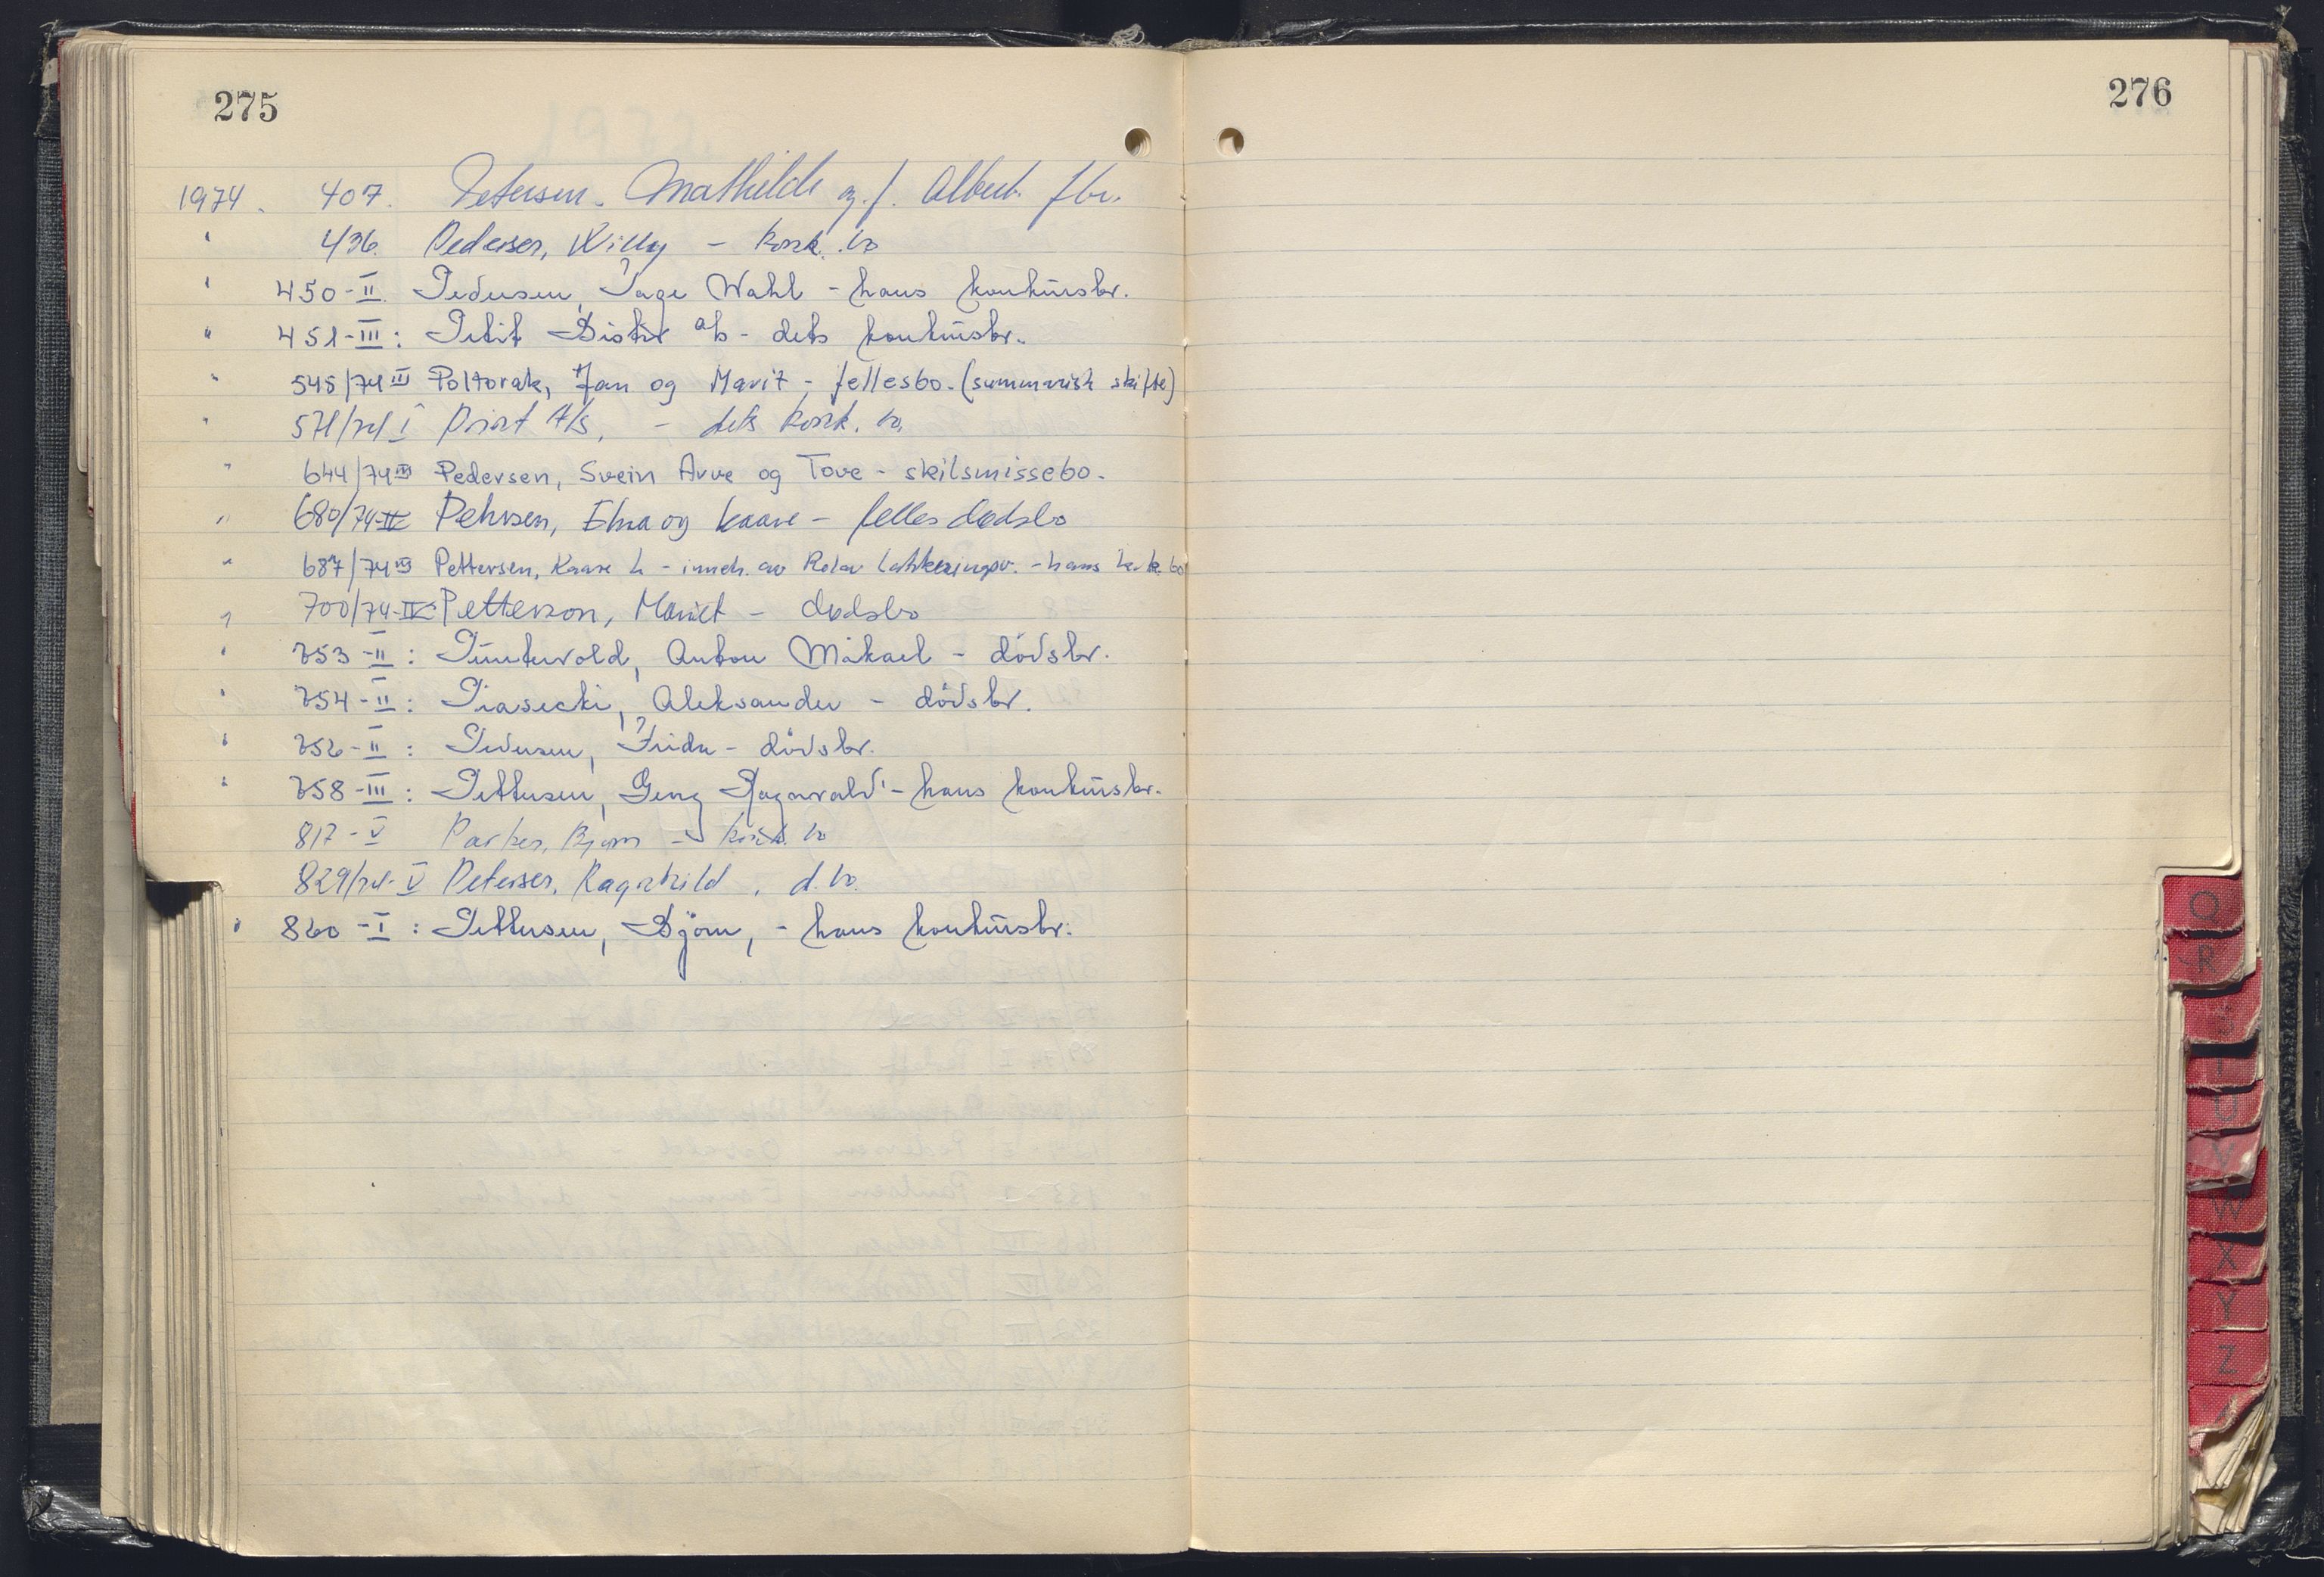 275
276
1974. 407. Petersen, Mathilde og f. Albert fbo.
" 436. Pedersen, Willy - konk. bo
" 450-II. Pedersen, Tage Wahl - hans konkursbo.
" 451-III: Petit Bistro A/S - dets konkursbo.
" 545/74 III Poltorak, Jan og Marit - fellesbo. (summarisk skifte)
" 571/74 I Print A/S, - dets konk. bo.
" 644/74 III Pedersen, Svein Arve og Tove - skilsmissebo.
" 680/74-IV Pehrsen, Elna og Kaare - felles dødsbo
" 687/74 III Pettersen, Kaare L - inneh. av Relav - hans bo
" 700/74-IV Petterson, - dødsbo
" 753-II: Puntervold, Anton Mikael - dödsbo.
" 754-II: Piasecki, Aleksander - dödsbo.
" 756-II: Pedersen, Frida - dödsbo.
" 758-III: Pettersen, Georg Ragnvald - hans konkursbo.
817-V Parker, Bjørn - konk. bo
829/74-V Petersen, Ragnhild, d. bo.
" 860-I: Pettersen, Björn, - hans konkursbo.
Q
R
S
T
U
V
W
X
Y
Z